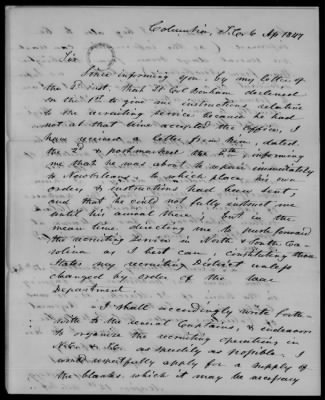 Columbia, S. Co. 6 Ap 1847
Sir
Since informing you by my letter of
the 2d inst, that Lt Col Bonham declined
on the 1st to give me instructions relative
to the recruiting service because he had
not at that time accepted the office, I
have received a letter from him, dated
the 2d & postmarked the 5th, informing
me that he was about to repair immediately
to New Orleans to which place his own
orders & instructions had been sent,
and that he could not fully instruct me
until his arrival there; but in the
mean time directing me to push forward
the recruiting service in North & South Ca-
rolina as I best can — constituting those
States my recruiting District unless
changed by order of the War
Department.
I shall accordingly write forth-
with to the several Captains, & endeavor
to organize the recruiting operations in
N.C. & S.C. as speedily as possible. I
would respectfully apply for a supply of
the blanks which it may be necessary